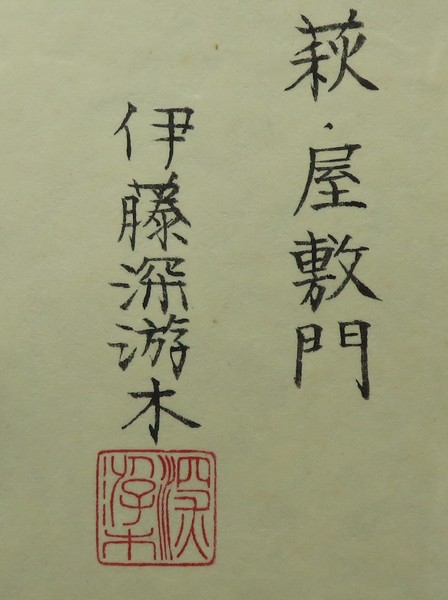 萩・屋敷門
伊藤深游木
深游木